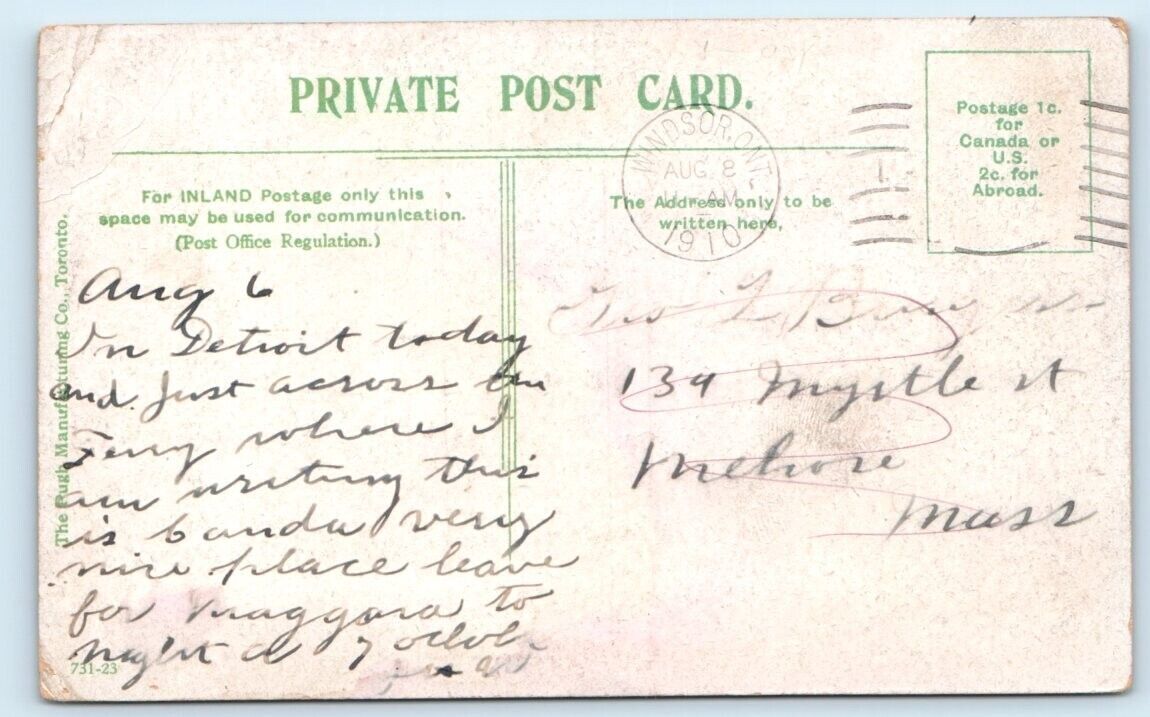 PRIVATE POST CARD.
Postage 1c.
for
Canada or
U.S.
2c. for
Abroad.
WINDSOR, ONT
AUG 8
AM
1910
For INLAND Postage only this
space may be used for communication.
(Post Office Regulation.)
The Address only to be
written here.
The Pugh Manufacturing Co., Toronto.
Aug 6
In Detroit today
and Just across the
Ferry where I
am writing this
is Canda very
nice place leave
for Niaggara to
night at 7 oclok
Geo L
134 Myrtle st
Melrose
Mass
731-23